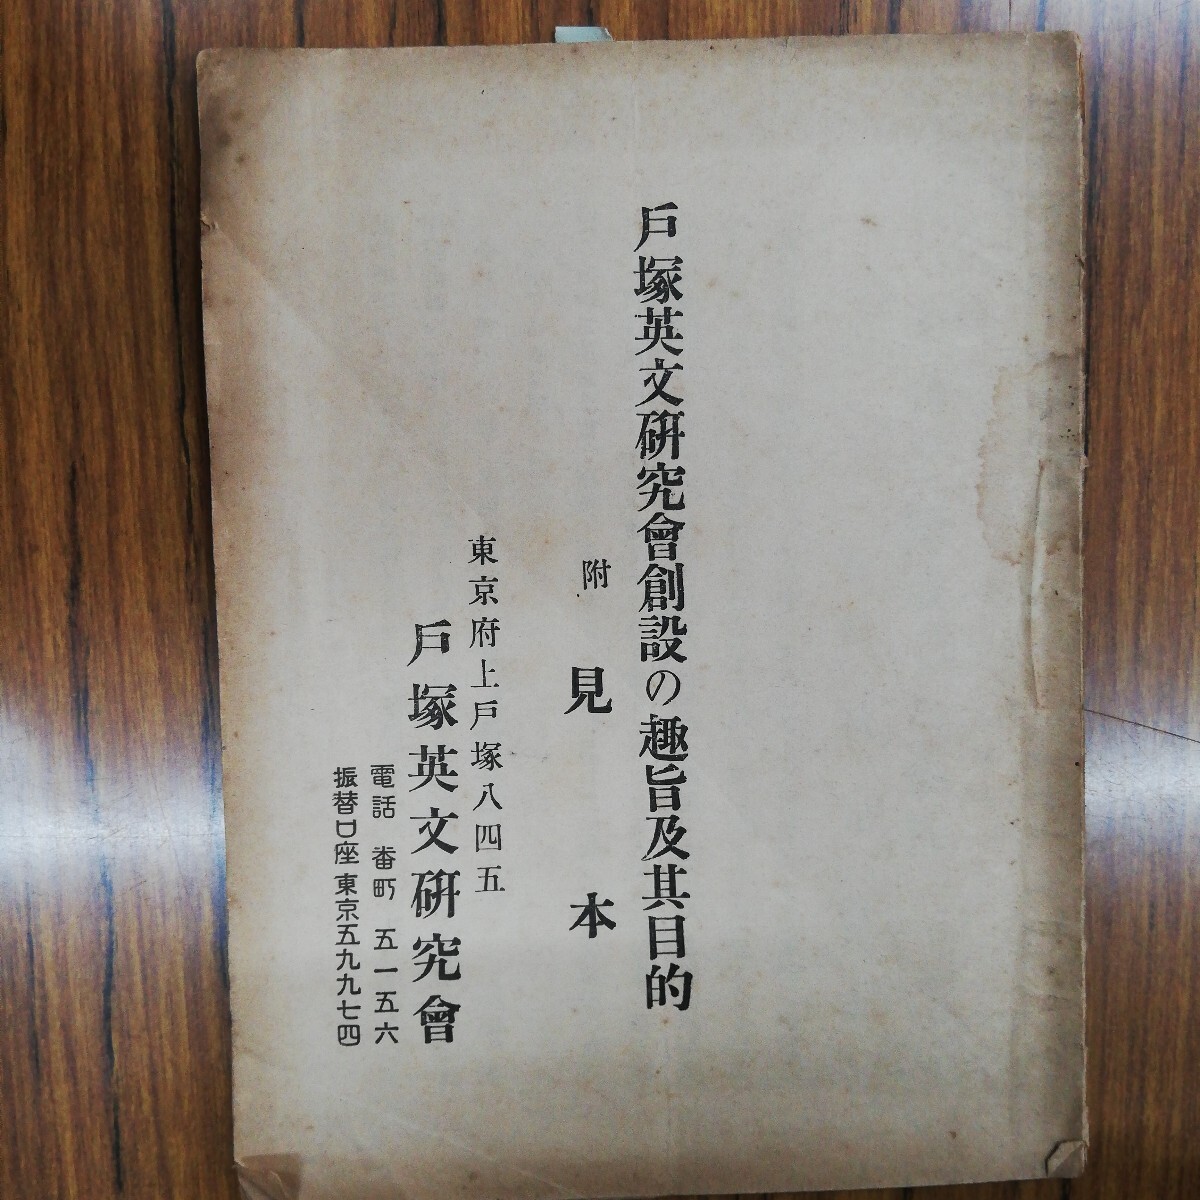 戶塚英文硏究會創設の趣旨及其目的
附 見本
東京府上戶塚八四五
戶塚英文硏究會
電話 番町 五一五六
振替口座 東京五九九七四